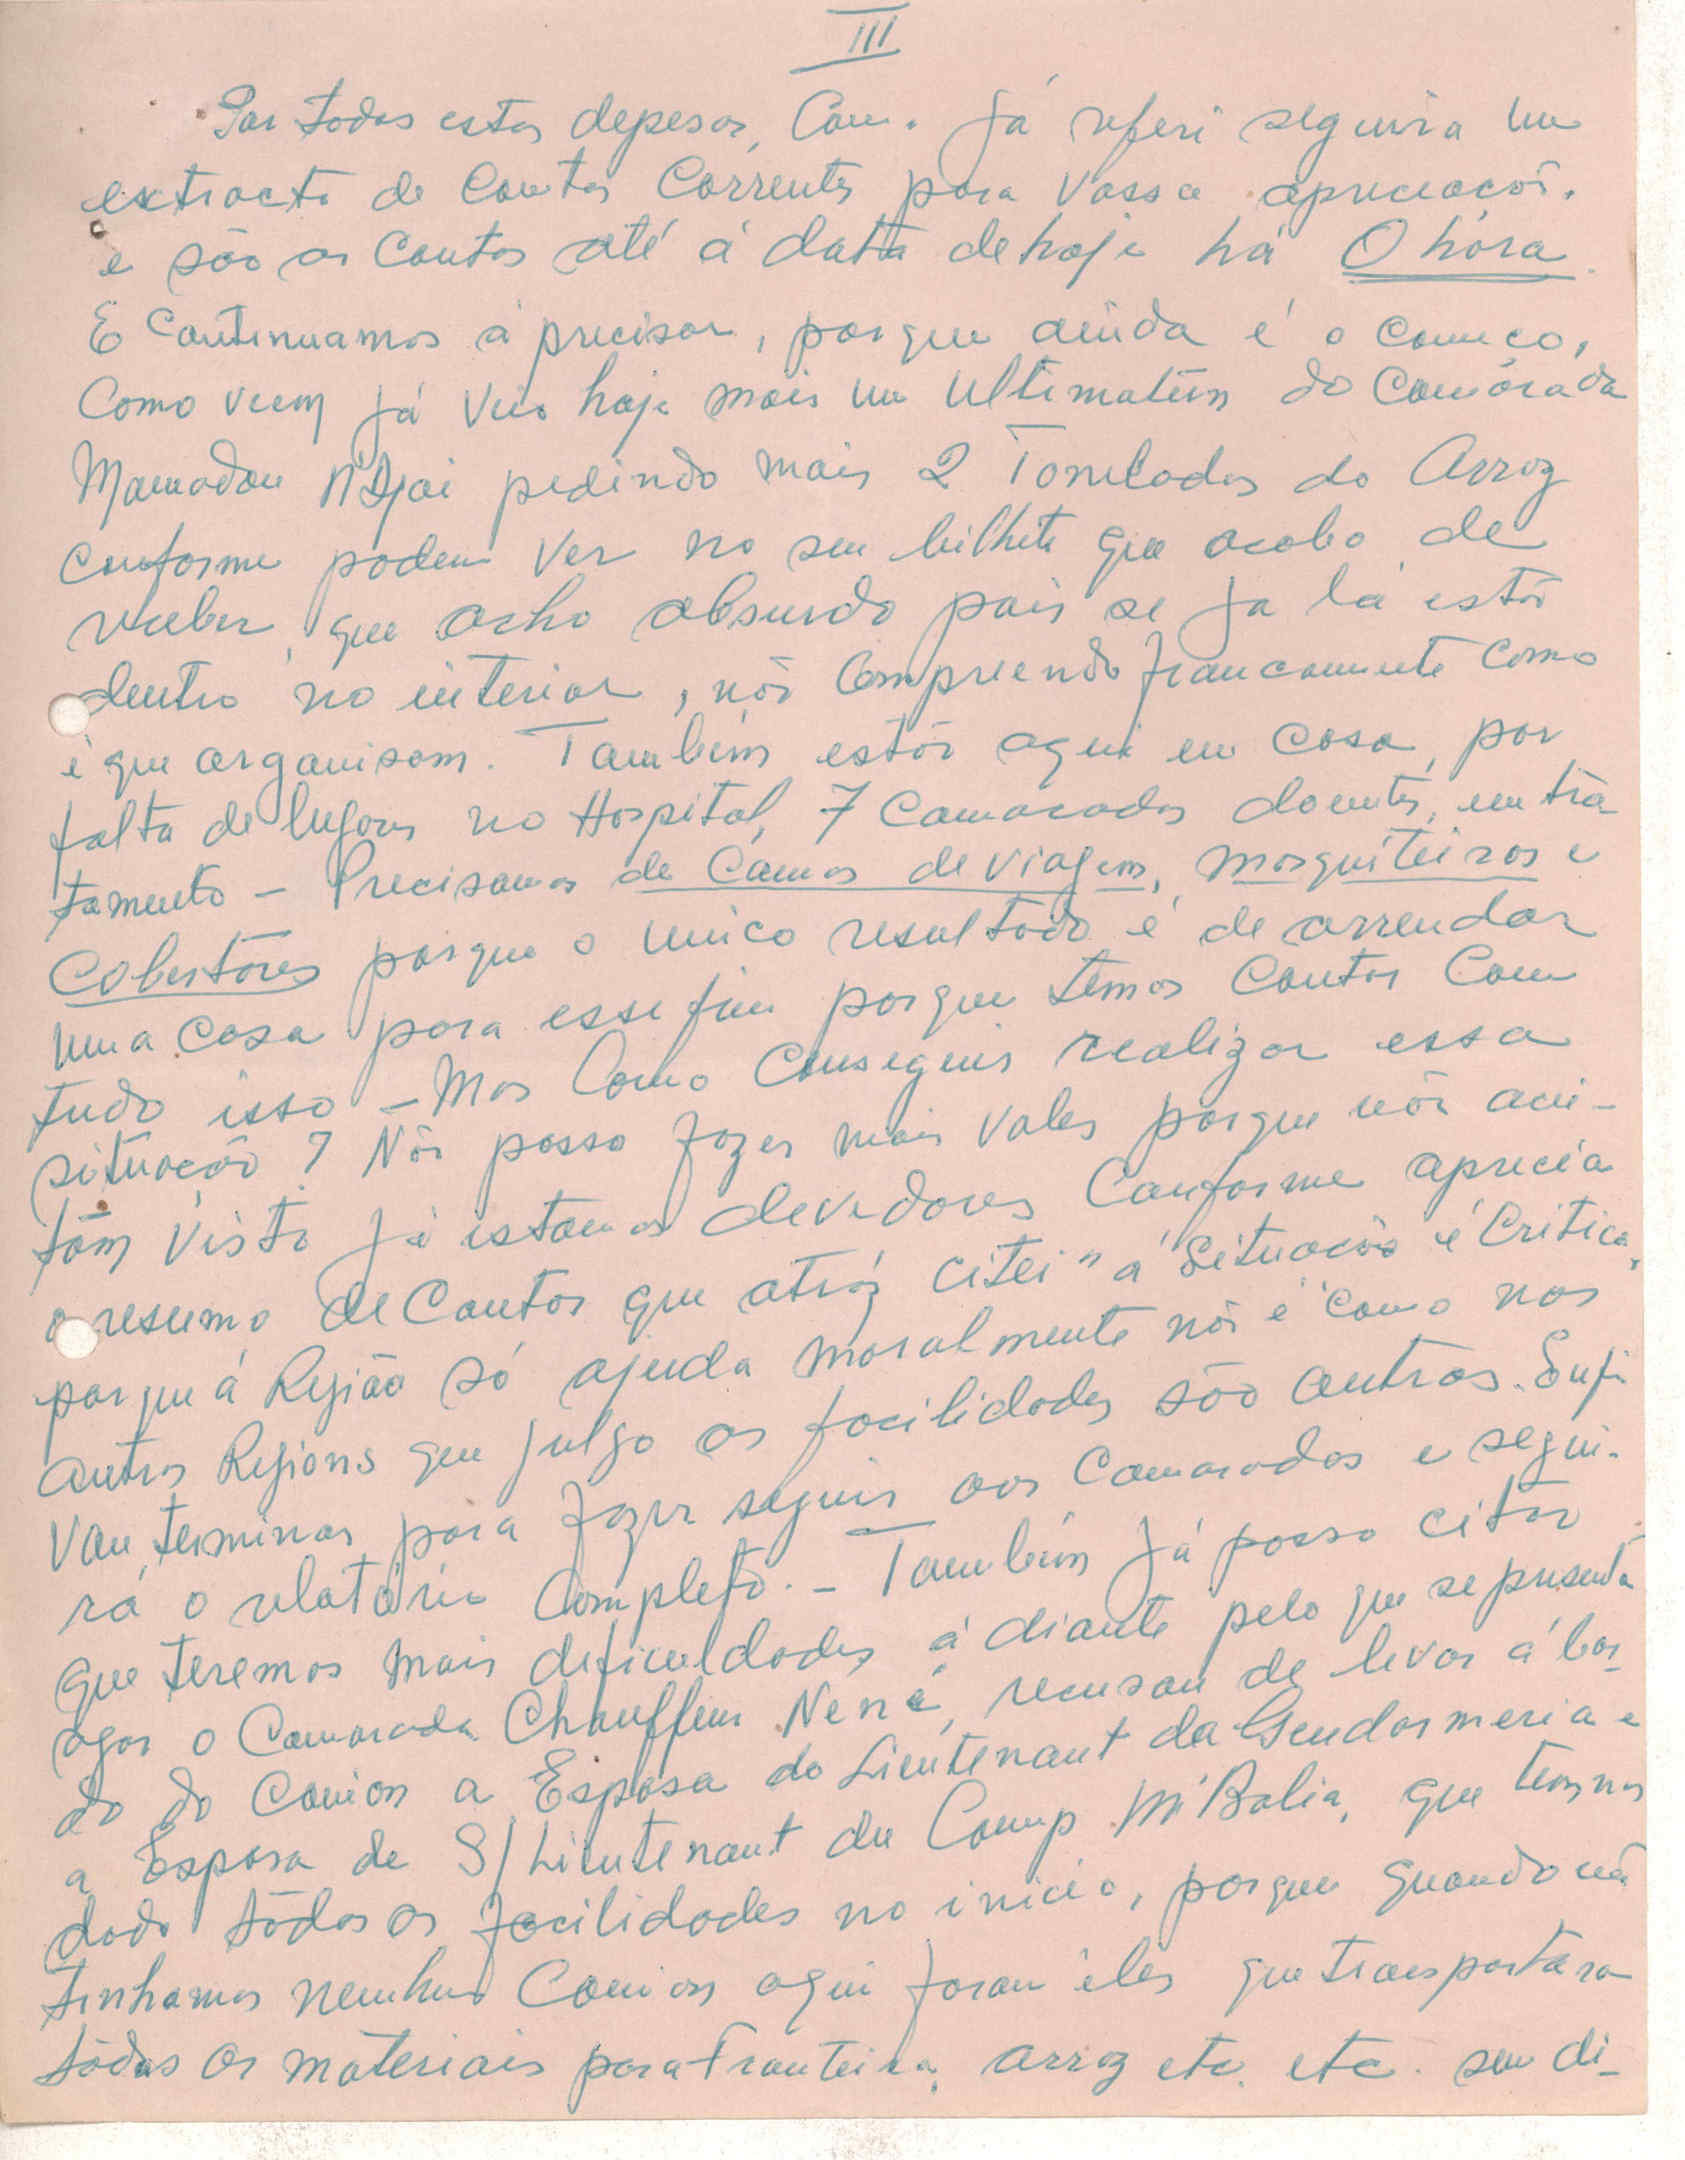 III
Por todas estas depesas, Com. já referi seguira um
extracto de Contas Correntes para Vossa apreciação.
e são as Contas até á data de hoje há O hóra.
E Continuamos á precisar, porque ainda é o começo,
Como veem já veio hoje mais um Ultimatúm do Camárada
Mamadou N'Djai pedindo mais 2 Toneladas do Arroz
Conforme podem Ver no seu bilhete que acabo de
receber, que acho absurdo pois se já lá estão
dentro no interior, não Compreendo francamente como
é que organisam. Também estão aqui em casa, por
falta de lugares no Hospital, 7 Camaradas doentes, em tra
tamento - Precisamos de Camas de viagem, mosquiteiros e
Cobertores porque o unico resultado é de arrendar
uma Casa para esse fim porque temos Contar Com
tudo isso - Mas Como Conseguir realizar essa
situação? Não posso fazer mais Vales porque não acei-
tam Visto já estamos devedores Conforme aprecia
o resumo de Contas que atráz citei" á Situação é Critica,
porque á Região só ajuda moralmente não é como nas
Outras Regiões que julgo as facilidades são Outras. Enfi
Vou terminar para fazer seguir aos Camaradas e segui-
rá o relatório Completo. - Também já posso citar
que teremos mais deficuldades á diante pelo que se presenta
agor o Camarada Chauffeur Nené, recusou de levar á bor-
do do Camion a Esposa do Lieutenant da Gendarmeria e
a Esposa de S/Lieutenant du Camp M'Balia, que tem nos
dado tôdas as facilidades no inicio, porque quando nã
tinhamos nenhum Camion aqui foram êles que transportara
tôdas os materiais para Fronteira, arroz etc. etc. sem di-